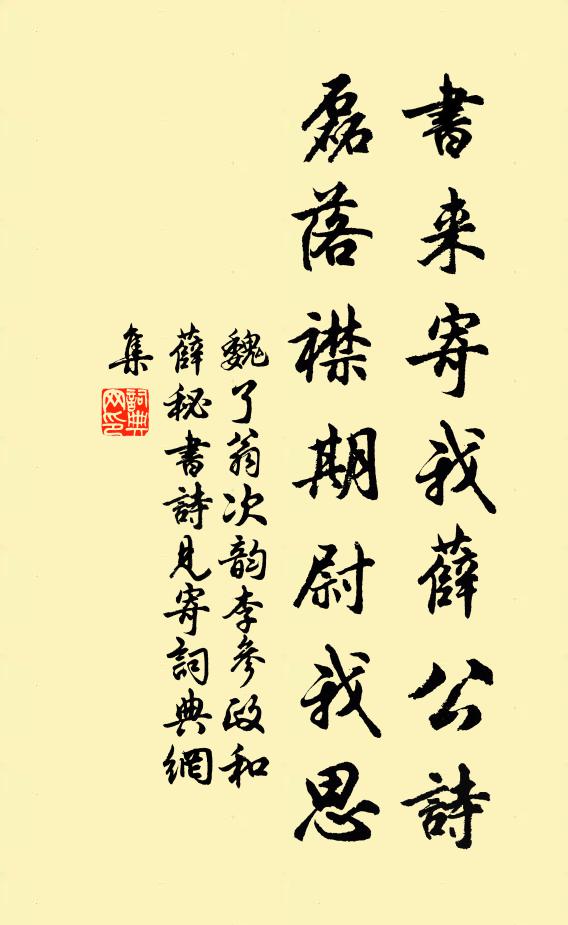 書来寄我薛公詩
磊落襟期尉我思
魏了翁次韵李參政和
薛秘書詩見寄詞典網
集
詞典
网印